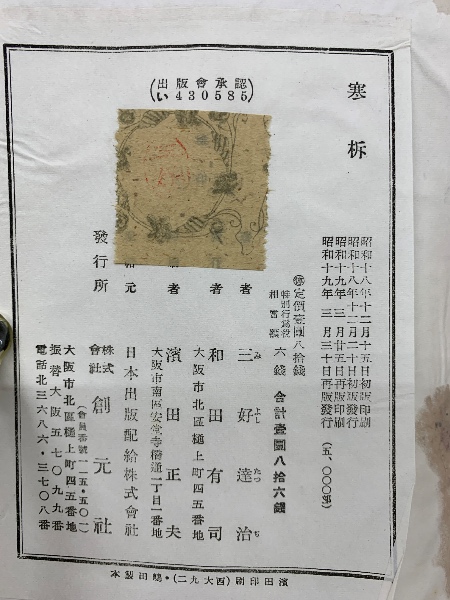 寒柝
(出版會承認
い430585)
昭和十八年十二月十五日初版印刷
昭和十八年十二月二十日初版發行
昭和十九年三月廿五日再版印刷
昭和十九年三月三十日再版發行
(五、〇〇〇部)
定價壹圓八拾錢
特別行爲税
相當額
六錢
合計壹圓八拾六錢
者
三好達治
みよしたつぢ
者
和田有司
大阪市北區樋上町四五番地
者
濱田正夫
大阪市南區安堂寺橋通二丁目一番地
元
日本出版配給株式會社
發行所
株式
會社
創元社
(會員番號一一五・五〇一)
大阪市北區樋上町四五番地
振替大阪五七〇九九番
電話北三六八六・三七〇八番
濱田印刷(西大九二)・鶴田製本